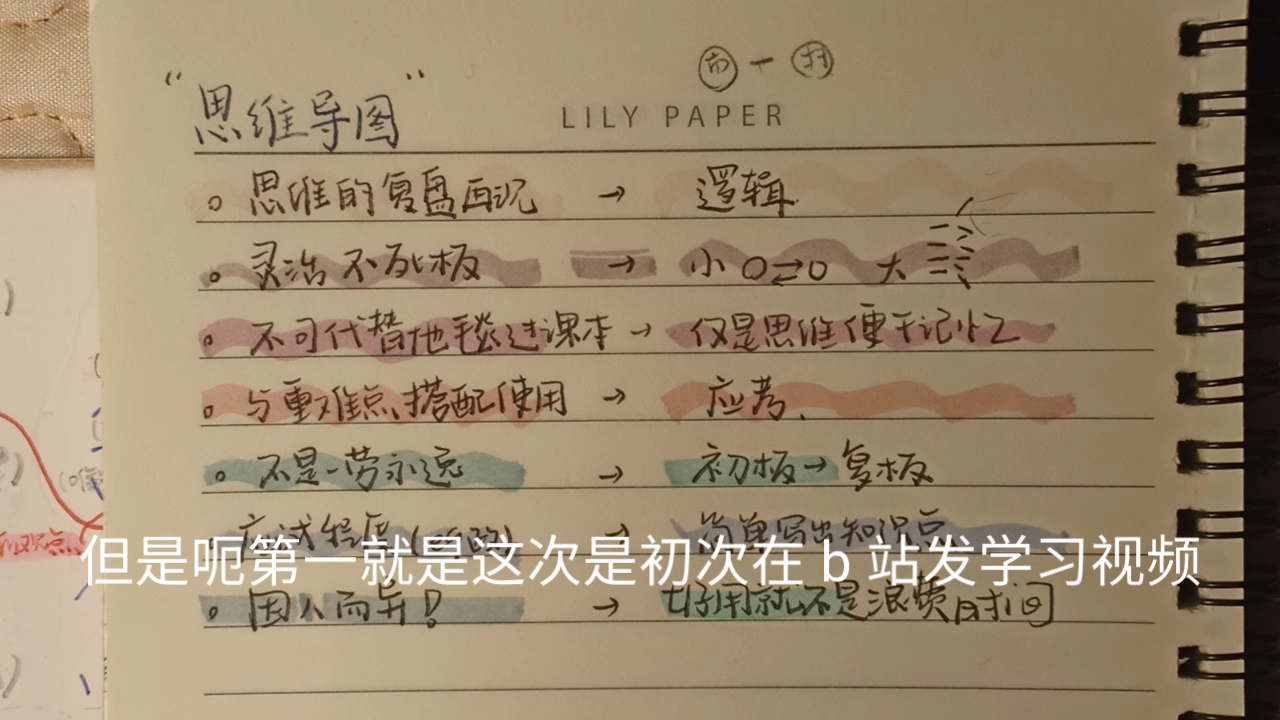 “思维导图”
LILY PAPER
思维的复盘画况 → 逻辑
灵活不死板 → 小 ○⇄○ 大
不可代替地毯过课本 → 仅是思维便于记忆
与重难点搭配使用 → 应考.
不是一劳永远 → 初板→复板
应试程度 → 简单写出知识点
但是呃第一就是这次是初次在 b 站发学习视频
因人而异! → 好用就不是浪费时间